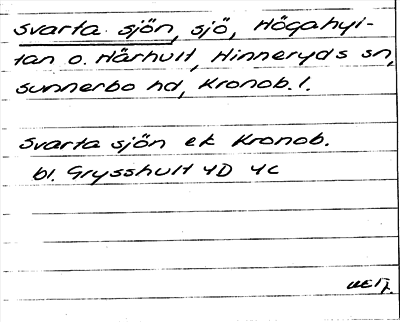 Svarta sjön, sjö, Högahyl-
tan o. Hårhult, Hinneryds sn,
Sunnerbo hd, Kronob. l.
Svarta sjön ek Kronob.
bl. Grysshult 4D 4c